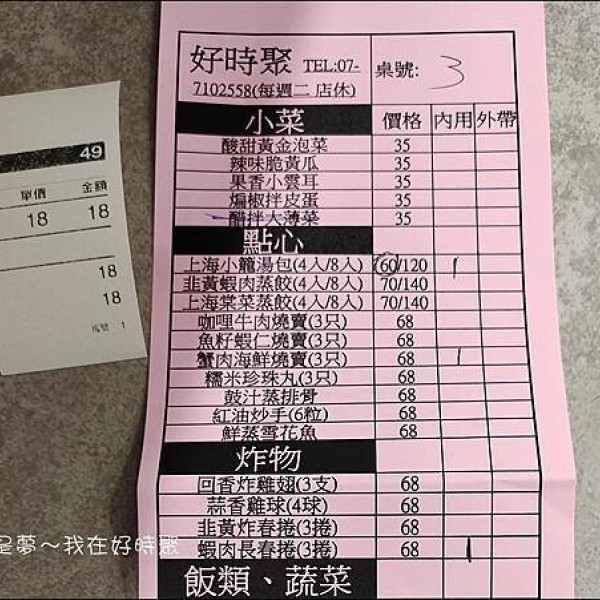 49
單價 金額
18 18
18
18
1
好時聚 TEL:07-
7102558(每週二 店休)
桌號: 3
小菜 價格 內用 外帶
酸甜黃金泡菜 35
辣味脆黃瓜 35
果香小雲耳 35
煸椒拌皮蛋 35
醋拌大薄菜 35
點心
上海小籠湯包(4入/8入) 60/120 1
韭黃蝦肉蒸餃(4入/8入) 70/140
上海棠菜蒸餃(4入/8入) 70/140
咖哩牛肉燒賣(3只) 68
魚籽蝦仁燒賣(3只) 68
蟹肉海鮮燒賣(3只) 68 1
糯米珍珠丸(3只) 68
鼓汁蒸排骨 68
紅油炒手(6粒) 68
鮮蒸雪花魚 68
炸物
回香炸雞翅(3支) 68
蒜香雞球(4球) 68
韭黃炸春捲(3捲) 68
蝦肉長春捲(3捲) 68 1
飯類、蔬菜
是夢～我在好時聚